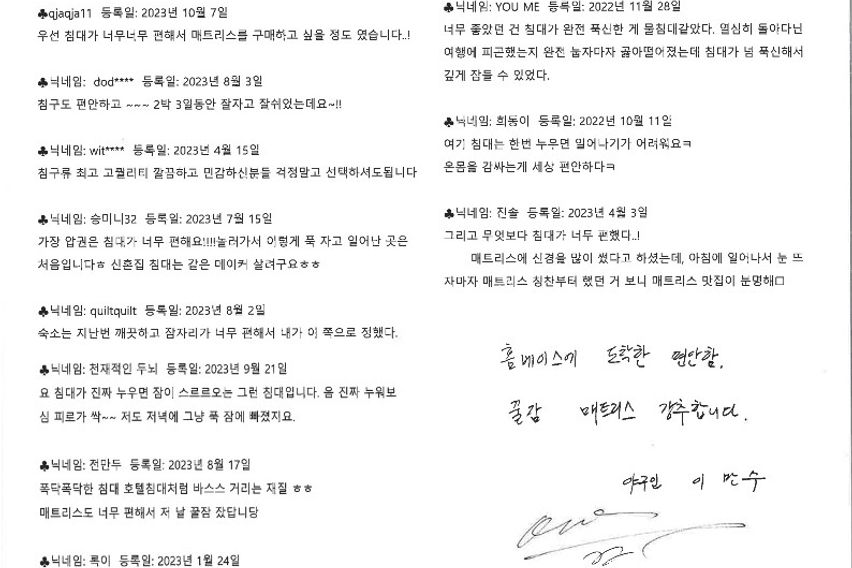 ♣qjaqja11 등록일: 2023년 10월 7일
우선 침대가 너무너무 편해서 매트리스를 구매하고 싶을 정도 였습니다..!
♣닉네임: dod**** 등록일: 2023년 8월 3일
침구도 편안하고 ~~~ 2박 3일동안 잘자고 잘쉬었는데요~!!
♣닉네임: wit**** 등록일: 2023년 4월 15일
침구류 최고 고퀄리티 깔끔하고 민감하신분들 걱정말고 선택하셔도됩니다
♣닉네임: 승미니32 등록일: 2023년 7월 15일
가장 압권은 침대가 너무 편해요!!!!놀러가서 이렇게 푹 자고 일어난 곳은
처음입니다ㅎ 신혼집 침대는 같은 메이커 살려구요ㅎㅎ
♣닉네임: quiltquilt 등록일: 2023년 8월 2일
숙소는 지난번 깨끗하고 잠자리가 너무 편해서 내가 이 쪽으로 정했다.
♣닉네임: 천재적인 두뇌 등록일: 2023년 9월 21일
요 침대가 진짜 누우면 잠이 스르르오는 그런 침대입니다. 옴 진짜 누워보
심 피로가 싹~~ 저도 저녁에 그냥 푹 잠에 빠졌지요.
♣닉네임: 전만두 등록일: 2023년 8월 17일
폭닥폭닥한 침대 호텔침대처럼 바스스 거리는 재질 ㅎㅎ
매트리스도 너무 편해서 저 날 꿀잠 잤답니당
♣닉네임: 록이 등록일: 2023년 1월 24일
♣닉네임: YOU ME 등록일: 2022년 11월 28일
너무 좋았던 건 침대가 완전 푹신한 게 물침대같았다. 열심히 돌아다닌
여행에 피곤했는지 완전 눕자마자 곯아떨어졌는데 침대가 넘 푹신해서
깊게 잠들 수 있었다.
♣닉네임: 희동이 등록일: 2022년 10월 11일
여기 침대는 한번 누우면 일어나기가 어려워요ㅋ
온몸을 감싸는게 세상 편안하다ㅋ
♣닉네임: 진솔 등록일: 2023년 4월 3일
그리고 무엇보다 침대가 너무 편했다..!
매트리스에 신경을 많이 썼다고 하셨는데, 아침에 일어나서 눈 뜨
자마자 매트리스 칭찬부터 했던 거 보니 매트리스 맛집이 분명해□
홈베이스에 도착한 편안함.
꿀잠 매트리스 강추합니다.
야구인 이만수